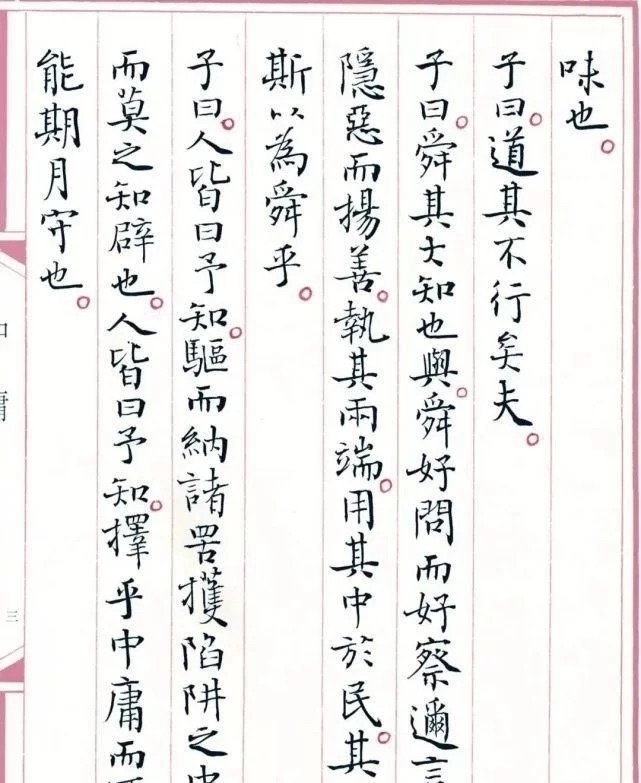 味也。
子曰。道其不行矣夫。
子曰。舜其大知也與。舜好問而好察邇言
隱惡而揚善。執其兩端。用其中於民。其
斯以為舜乎。
子曰。人皆曰予知。驅而納諸罟擭陷阱之中
而莫之知辟也。人皆曰予知。擇乎中庸而
能期月守也。
庸
三